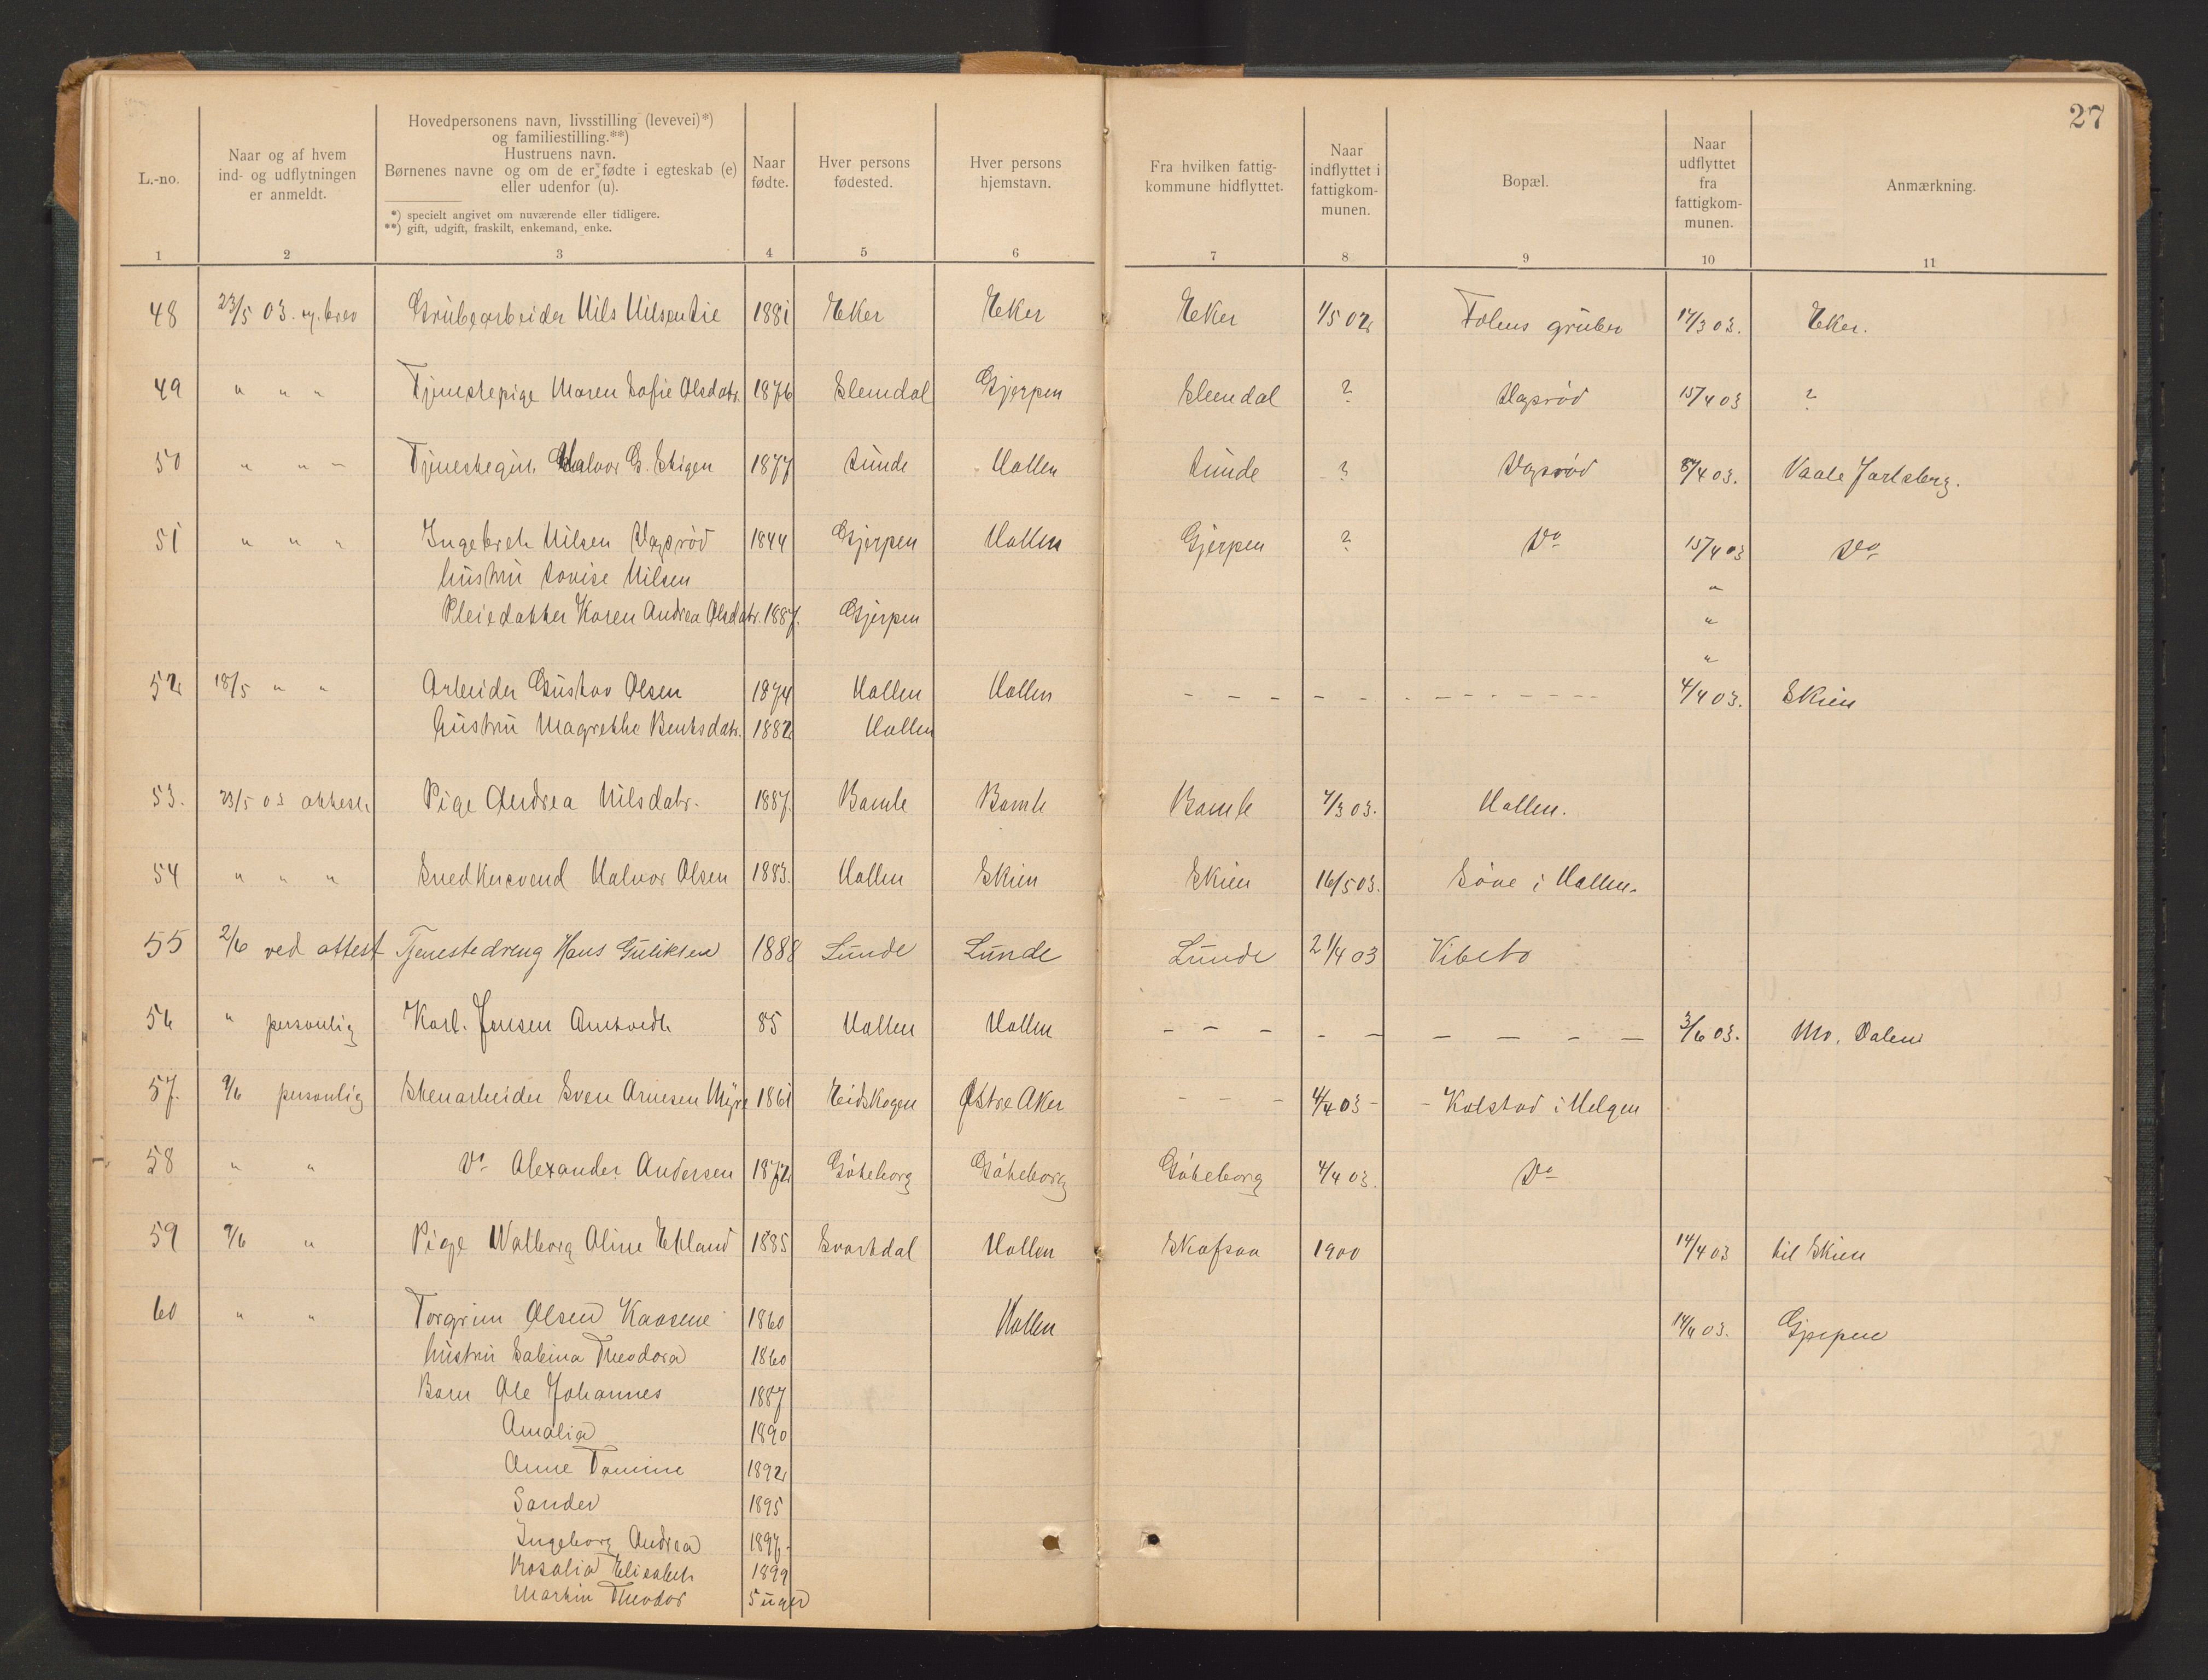 27
L.-no.
Naar og af hvem
ind- og udflytningen
er anmeldt.
Hovedpersonens navn, livsstilling (levevei)*)
og familiestilling.**)
Hustruens navn.
Børnenes navne og om de er fødte i egteskab (e)
eller udenfor (u).
*) specielt angivet om nuværende eller tidligere.
**) gift, udgift, fraskilt, enkemand, enke.
Naar
fødte.
Hver persons
fødested.
Hver persons
hjemstavn.
Fra hvilken fattig-
kommune hidflyttet.
Naar
indflyttet i
fattigkom-
munen.
Bopæl.
Naar
udflyttet
fra
fattigkom-
munen.
Anmærkning.
1 2 3 4 5 6 7 8 9 10 11
48 23/5 03. brev Grubearbeider Nils Nilsen 1881 Eker Eker Eker 1/5 02 Folens gruber 17/3 03. Eker.
49 " " " Tjenestepige Maren Sofie Olsdatr. 1876 Slemdal Gjerpen Slemdal ? Vagsrød 15/4 03 ?
50 " " " Halvor G. Stigen 1877 Lunde Hollen Lunde ? Vagsrød 8/4 03. Vaale Jarlsberg.
51 " " " Ingebret Nilsen Vagsrød 1844 Gjerpen Hollen Gjerpen ? Do 15/4 03 Do
hustru Lovise Nilsen "
Pleiedatter Karen Andrea Olsdatr. 1887. Gjerpen "
"
52 18/5 " " Arbeider Gustav Olsen 1874 Hollen Hollen - - - - - - - - - - - 4/4 03. Skien
hustru Magrethe Bentsdatr. 1882 Hollen
53. 23/5 03 attest Pige Andrea Nilsdatr. 1887. Bamle Bamle Bamle 7/3 03. Hollen.
54 " " " Snedkersvend Halvor Olsen 1883. Hollen Skien Skien 16/5 03. Søve i Hollen.
55 2/6 ved attest Tjenestedreng Hans Guliksen 1888 Lunde Lunde Lunde 21/4 03 Vibeto
56 " personlig Karl. Jensen Amtvedt 85 Hollen Hollen - - - - - - - - - 3/6 03. Mo, Dalen
57. 9/6 personlig Stenarbeider Sven Arnesen Myre 1861 Eidskogen Østre Aker - - - 4/4 03 - - Kolstad i Helgen
58 " " Do Alexander Andersen 1872 Göteborg Göteborg Göteborg 4/4 03. Do
59 9/6 " Pige Walborg Aline Ekland 1885 Svartdal Hollen Skafsaa 1900 14/4 03 til Skien
60 " " Torgrim Olsen Kaasene 1860 Hollen 14/4 03. Gjerpen
hustru Sabina Theodora 1860
Barn Ole Johannes 1887
Amalia 1890
Anne Tomine 1892
Sander 1895
Ingeborg Andrea 1897.
Rosalia Elisabet 1899
Martin Theodor 5 uger